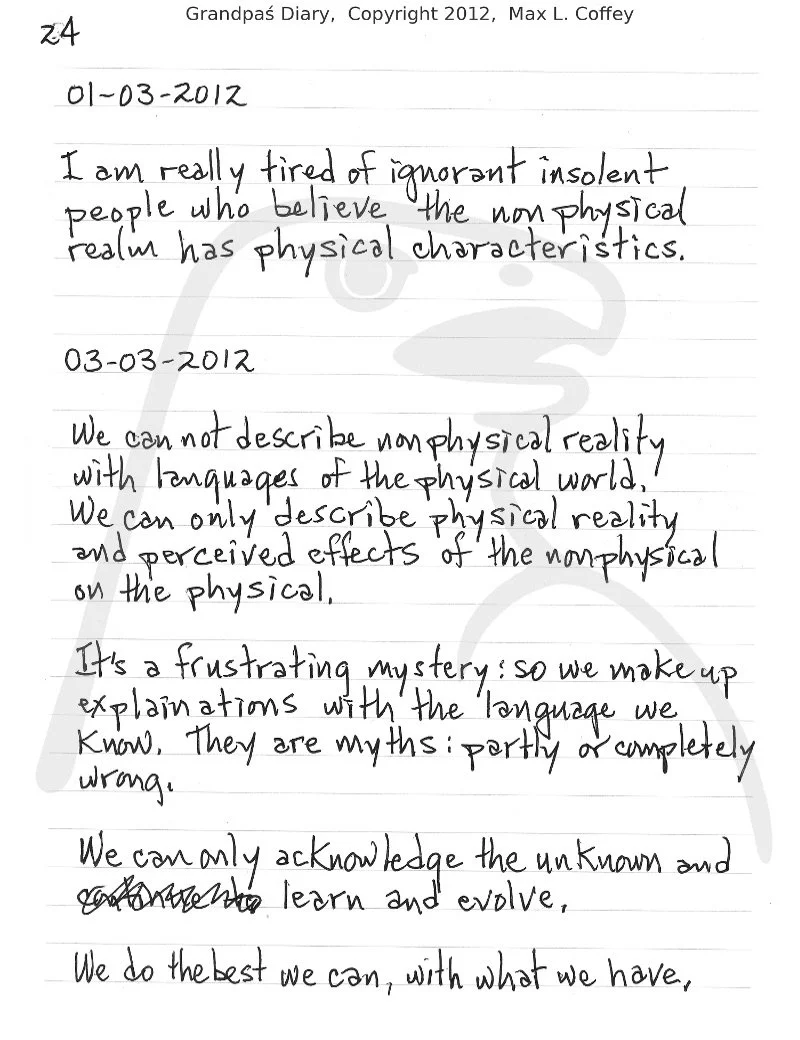 Grandpaś Diary, Copyright 2012, Max L. Coffey
24
01-03-2012
I am really tired of ignorant insolent
people who believe the nonphysical
realm has physical characteristics.
03-03-2012
We can not describe nonphysical reality
with languages of the physical world.
We can only describe physical reality
and perceived effects of the nonphysical
on the physical.
It's a frustrating mystery: so we make up
explainations with the language we
know. They are myths: partly or completely
wrong.
We can only acknowledge the unknown and
learn and evolve.
We do the best we can, with what we have,